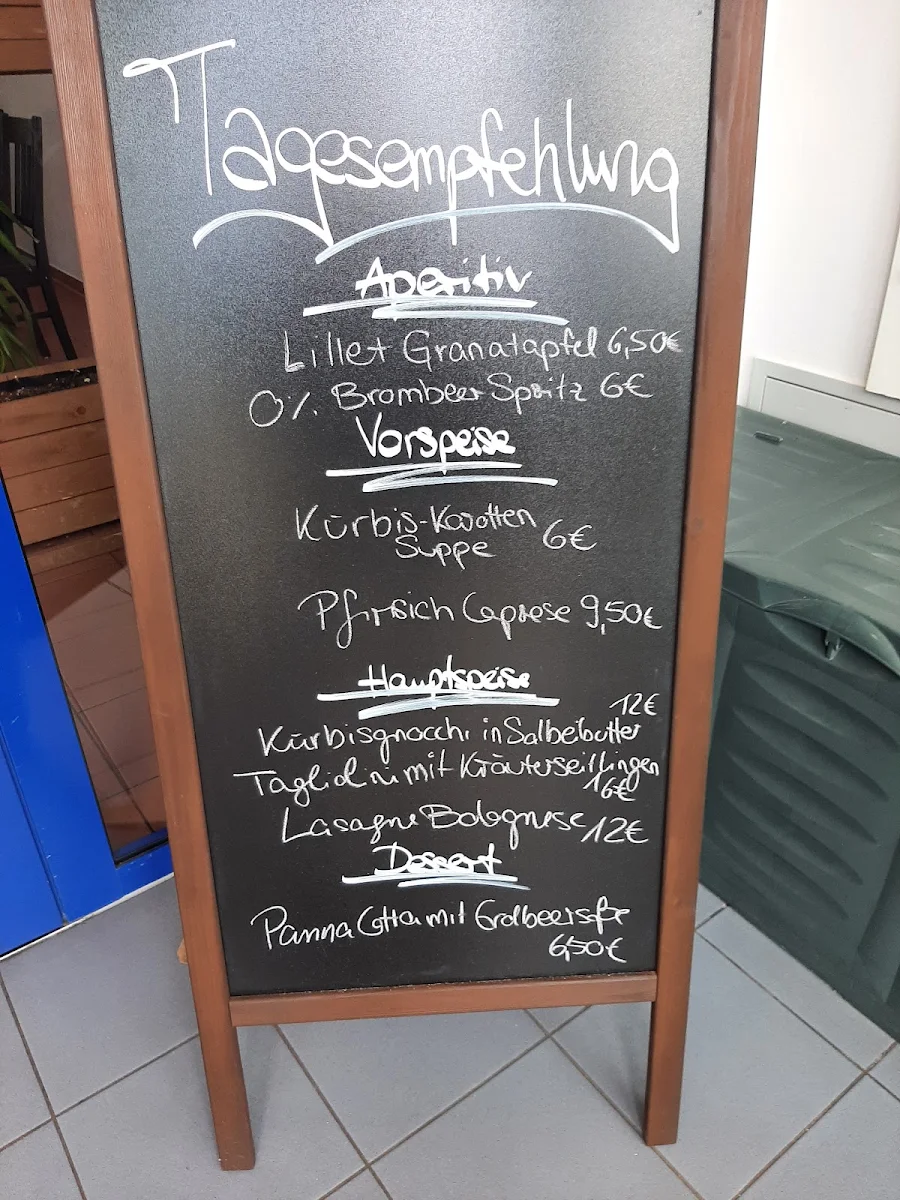 Tagesempfehlung
Aperitiv
Lillet Granatapfel 6,50€
0% Brombeer Spritz 6€
Vorspeise
Kürbis-Karotten
Suppe 6€
Pfirsich Caprese 9,50€
Hauptspeise
12€
Kürbisgnocchi in Salbeibutter
Tagliolini mit Kräuterseitlingen
16€
Lasagne Bolognese 12€
Dessert
Panna Cotta mit
6,50€